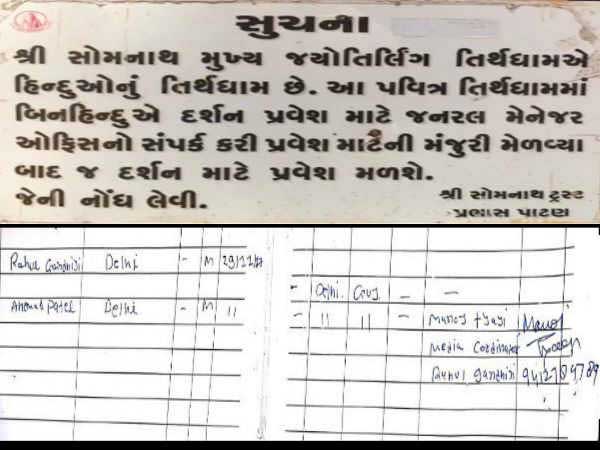 સુચના
શ્રી સોમનાથ મુખ્ય જયોતિર્લિંગ તિર્થધામએ
હિન્દુઓનું તિર્થધામ છે. આ પવિત્ર તિર્થધામમાં
બિનહિન્દુએ દર્શન પ્રવેશ માટે જનરલ મેનેજર
ઓફિસનો સંપર્ક કરી પ્રવેશ માટેની મંજુરી મેળવ્યા
બાદ જ દર્શન માટે પ્રવેશ મળશે.
જેની નોંધ લેવી.
શ્રી સોમનાથ ટ્રસ્ટ
પ્રભાસ પાટણ
Rahul Gandhiji Delhi - M 29/11/17
Ahmad Patel Delhi - M 11
- Delhi. Guj - -
- 11 11 - Manoj tyagi Manoj
Media Coordinator
Rahul gandhiji